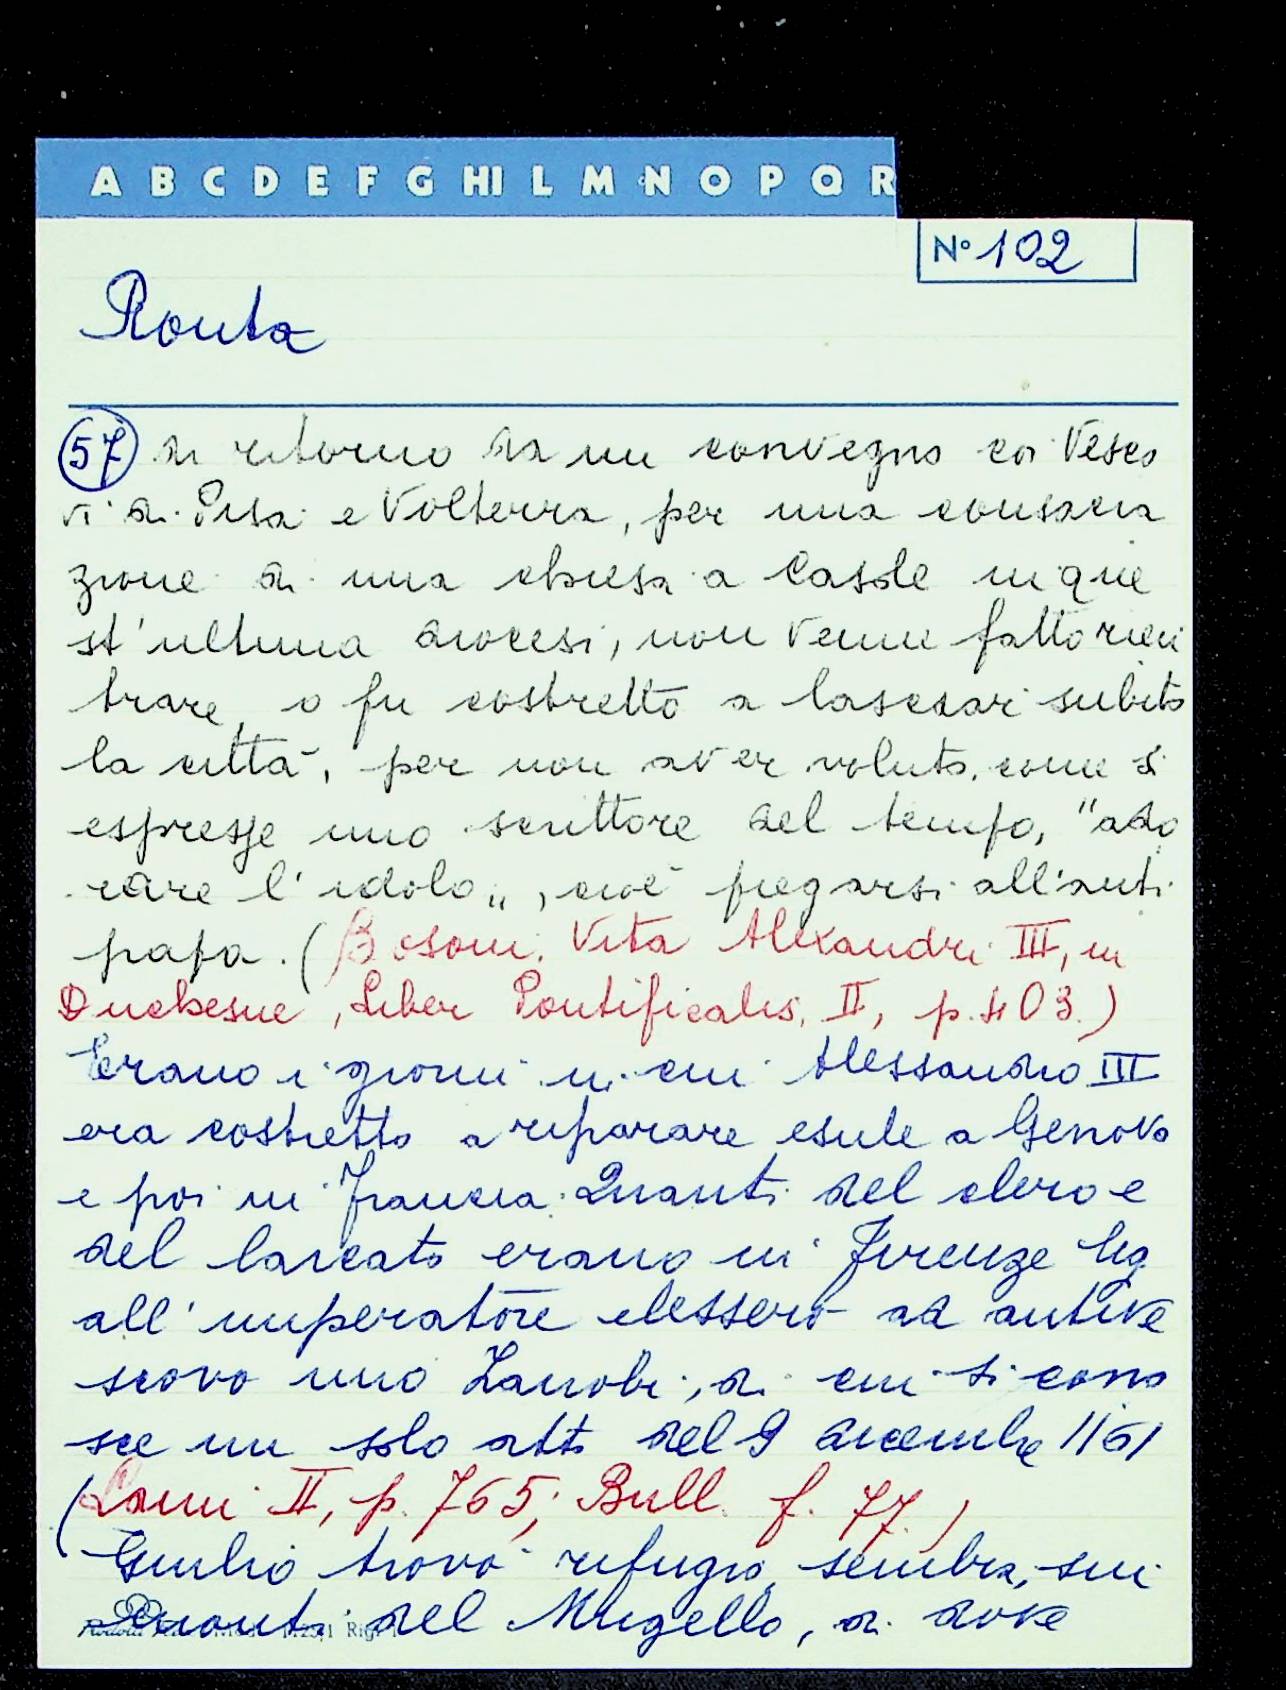 A B C D E F G HI L M N O P Q R
N° 102
Ronta
57 di ritorno da un convegno coi Vesco
vi di Pisa e Volterra, per una consacra
zione di una chiesa a Casole in que
st'ultima diocesi, non venne fatto rien
trare, o fu costretto a lasciar subito
la città, per non aver voluto, come si
espresse uno scrittore del tempo, "ado
rare l'idolo„, cioè piegarsi all'anti
papa. (Bosoni. Vita Alexandri III, in
Duchesne, Liber Pontificalis, II, p. 403.)
Erano i giorni in cui Alessandro III
era costretto a riparare esule a Genova
e poi in Francia. Quanti del clero e
del laicato erano in Firenze lig
all'imperatore elessero ad antive
scovo uno Zanobi, di cui si cono
sce un solo atto del 9 dicembre 1161
(Lami II, p. 765; Bull. f. 77.)
Giulio trovò rifugio, sembra, sui
monti del Mugello, di dove